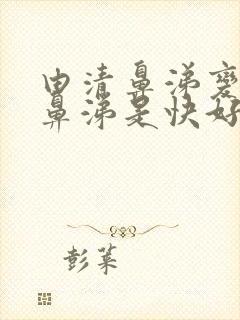 由清鼻涕变
鼻涕是快好
彭莱